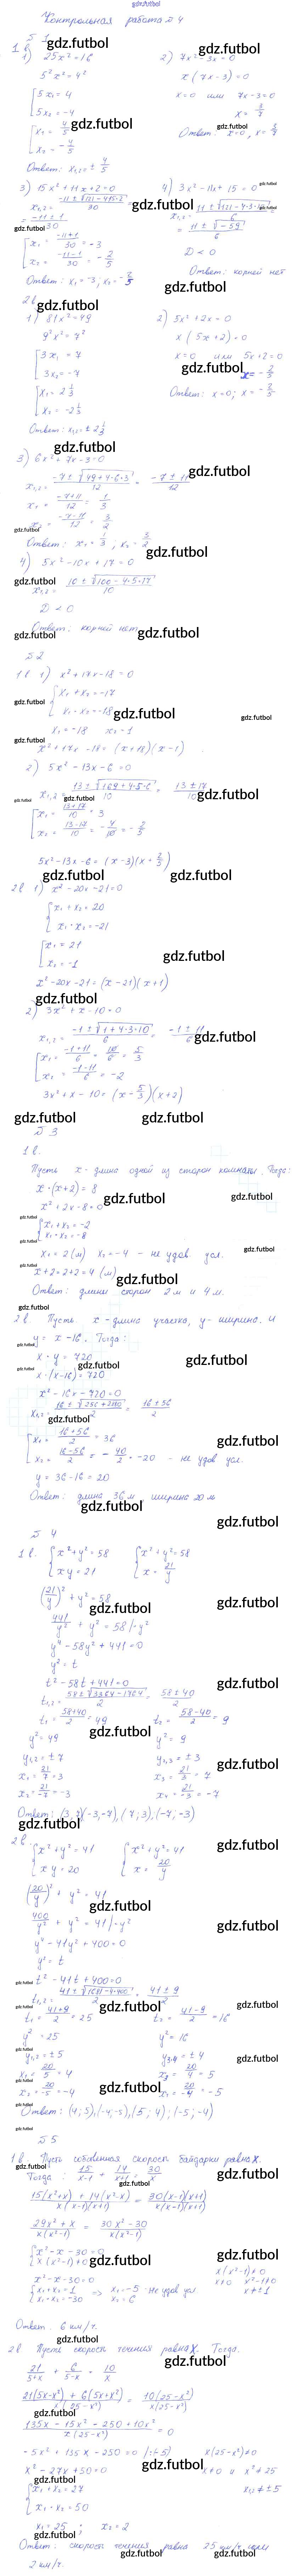 gdz.futbol
Контрольная работа №4
§ 1
1 в
1) 25x² = 16
5²x² = 4²
5x₁ = 4
5x₂ = -4
x₁ = 4/5
x₂ = -4/5
Ответ: x₁,₂ = ± 4/5
2) 7x² - 3x = 0
x (7x - 3) = 0
x = 0 или 7x - 3 = 0
x = 3/7
Ответ: x = 0, x = 3/7
3) 15x² + 11x + 2 = 0
x₁,₂ = (-11 ± √(121 - 4·15·2))/30 =
= (-11 ± 1)/30
x₁ = (-11+1)/30 = -3
x₂ = (-11-1)/30 = -2/5
Ответ: x₁ = -3, x₂ = -2/5
4) 3x² - 11x + 15 = 0
= (11 ± √-59)/6
D < 0
Ответ: корней нет
2 в
1) 81x² = 49
9²x² = 7²
Ответ: x₁,₂ = ± 2 1/3
2) 5x² + 2x = 0
x (5x + 2) = 0
x = 0 или 5x + 2 = 0
x = -2/5
Ответ: x = 0; x = -2/5
3) 6x² + 7x - 3 = 0
x₁,₂ = (-7 ± √(49 + 4·6·3))/12 = (-7 ± 11)/12
x₁ = (-7+11)/12 = 1/3
x₂ = (-7-11)/12 = 3/2
Ответ: x₁ = 1/3; x₂ = 3/2
4) 5x² - 10x + 17 = 0
x₁,₂ = (10 ± √(100 - 4·5·17))/10
D < 0
Ответ: корней нет
§ 2
1 в 1) x² + 17x - 18 = 0
x₁ + x₂ = -17
x₁ · x₂ = -18
x₁ = -18 x₂ = 1
x² + 17x - 18 = (x + 18)(x - 1)
2) 5x² - 13x - 6 = 0
x₁,₂ = (13 ± √(169 + 4·5·6))/10 = (13 ± 17)/10
x₁ = (13+17)/10 = 3
x₂ = (13-17)/10 = -4/10 = -2/5
5x² - 13x - 6 = (x - 3)(x + 2/5)
2 в 1) x² - 20x - 21 = 0
x₁ + x₂ = 20
x₁ · x₂ = -21
x₁ = 21
x₂ = -1
x² - 20x - 21 = (x - 21)(x + 1)
2) 3x² + x - 10 = 0
x₁,₂ = (-1 ± √(1 + 4·3·10))/6 = (-1 ± 11)/6
x₁ = (-1+11)/6 = 10/6 = 5/3
x₂ = (-1-11)/6 = -2
3x² + x - 10 = (x - 5/3)(x + 2)
§ 3
1 в.
Пусть x - длина одной из сторон комнаты. Тогда:
x·(x + 2) = 8
x² + 2x - 8 = 0
x₁ + x₂ = -2
x₁ · x₂ = -8
x₁ = 2 (м) x₂ = -4 - не удов. усл.
x + 2 = 2 + 2 = 4 (м)
Ответ: длины сторон 2 м и 4 м.
2 в. Пусть x - длина участка, y - ширина. и
y = x - 16. Тогда:
x · y = 720
x · (x - 16) = 720
x² - 16x - 720 = 0
x₁,₂ = (16 ± √(256 + 2880))/2 = (16 ± 56)/2
x₁ = (16+56)/2 = 36
x₂ = (16-56)/2 = -40/2 = -20 - не удов. усл.
y = 36 - 16 = 20
Ответ: длина 36 м ширина 20 м
§ 4
1 в. x² + y² = 58 x² + y² = 58
xy = 21 x = 21/y
(21/y)² + y² = 58
441/y² + y² = 58 | · y²
y⁴ - 58y² + 441 = 0
y² = t
t² - 58t + 441 = 0
t₁,₂ = (58 ± √(3364 - 1764))/2 = (58 ± 40)/2
t₁ = (58+40)/2 = 49 t₂ = (58-40)/2 = 9
y² = 49 y² = 9
y₁,₂ = ± 7 y₃,₄ = ± 3
x₁ = 21/7 = 3 x₃ = 21/3 = 7
x₂ = 21/-7 = -3 x₄ = 21/-3 = -7
Ответ: (3, 7) (-3, -7), (7; 3), (-7; -3)
2 в. x² + y² = 41 x² + y² = 41
xy = 20 x = 20/y
(20/y)² + y² = 41
400/y² + y² = 41 | · y²
y⁴ - 41y² + 400 = 0
y² = t
t² - 41t + 400 = 0
t₁,₂ = (41 ± √(1681 - 4·400))/2 = (41 ± 9)/2
t₁ = (41+9)/2 = 25 t₂ = (41-9)/2 = 16
y² = 25 y² = 16
y₁,₂ = ± 5 y₃,₄ = ± 4
x₁ = 20/5 = 4 x₃ = 20/4 = 5
x₂ = 20/-5 = -4 x₄ = 20/-4 = -5
Ответ: (4; 5), (-4; -5), (5; 4); (-5; -4)
§ 5
1 в Пусть собственная скорость байдарки равна x.
Тогда: 15/(x-1) + 14/(x+1) = 30/x
(15(x²+x) + 14(x²-x))/(x(x-1)(x+1)) = 30(x-1)(x+1)/(x(x-1)(x+1))
(29x² + x)/(x(x²-1)) = (30x² - 30)/(x(x²-1))
x² - x - 30 = 0
x(x² - 1) ≠ 0
x(x² - 1) ≠ 0
x ≠ 0 x² - 1 ≠ 0
x ≠ ± 1
x² - x - 30 = 0
x₁ + x₂ = 1
x₁ · x₂ = -30
=> x₁ = -5 - не удов усл
x₂ = 6
Ответ: 6 км/ч.
2 в Пусть скорость течения равна x. Тогда:
21/(5+x) + 6/(5-x) = 10/x
(21(5x-x²) + 6(5x+x²))/(x(25-x²)) = 10(25-x²)/(x(25-x²))
(135x - 15x² - 250 + 10x²)/(x(25-x²)) = 0
-5x² + 135x - 250 = 0 | :(-5) x(25-x²) ≠ 0
x² - 27x + 50 = 0 x ≠ 0 и x² ≠ 25
x₁,₂ ≠ ± 5
x₁ + x₂ = 27
x₁ · x₂ = 50
x₁ = 25 ; x₂ = 2
Ответ: скорость течения равна 25 км/ч или
2 км/ч.